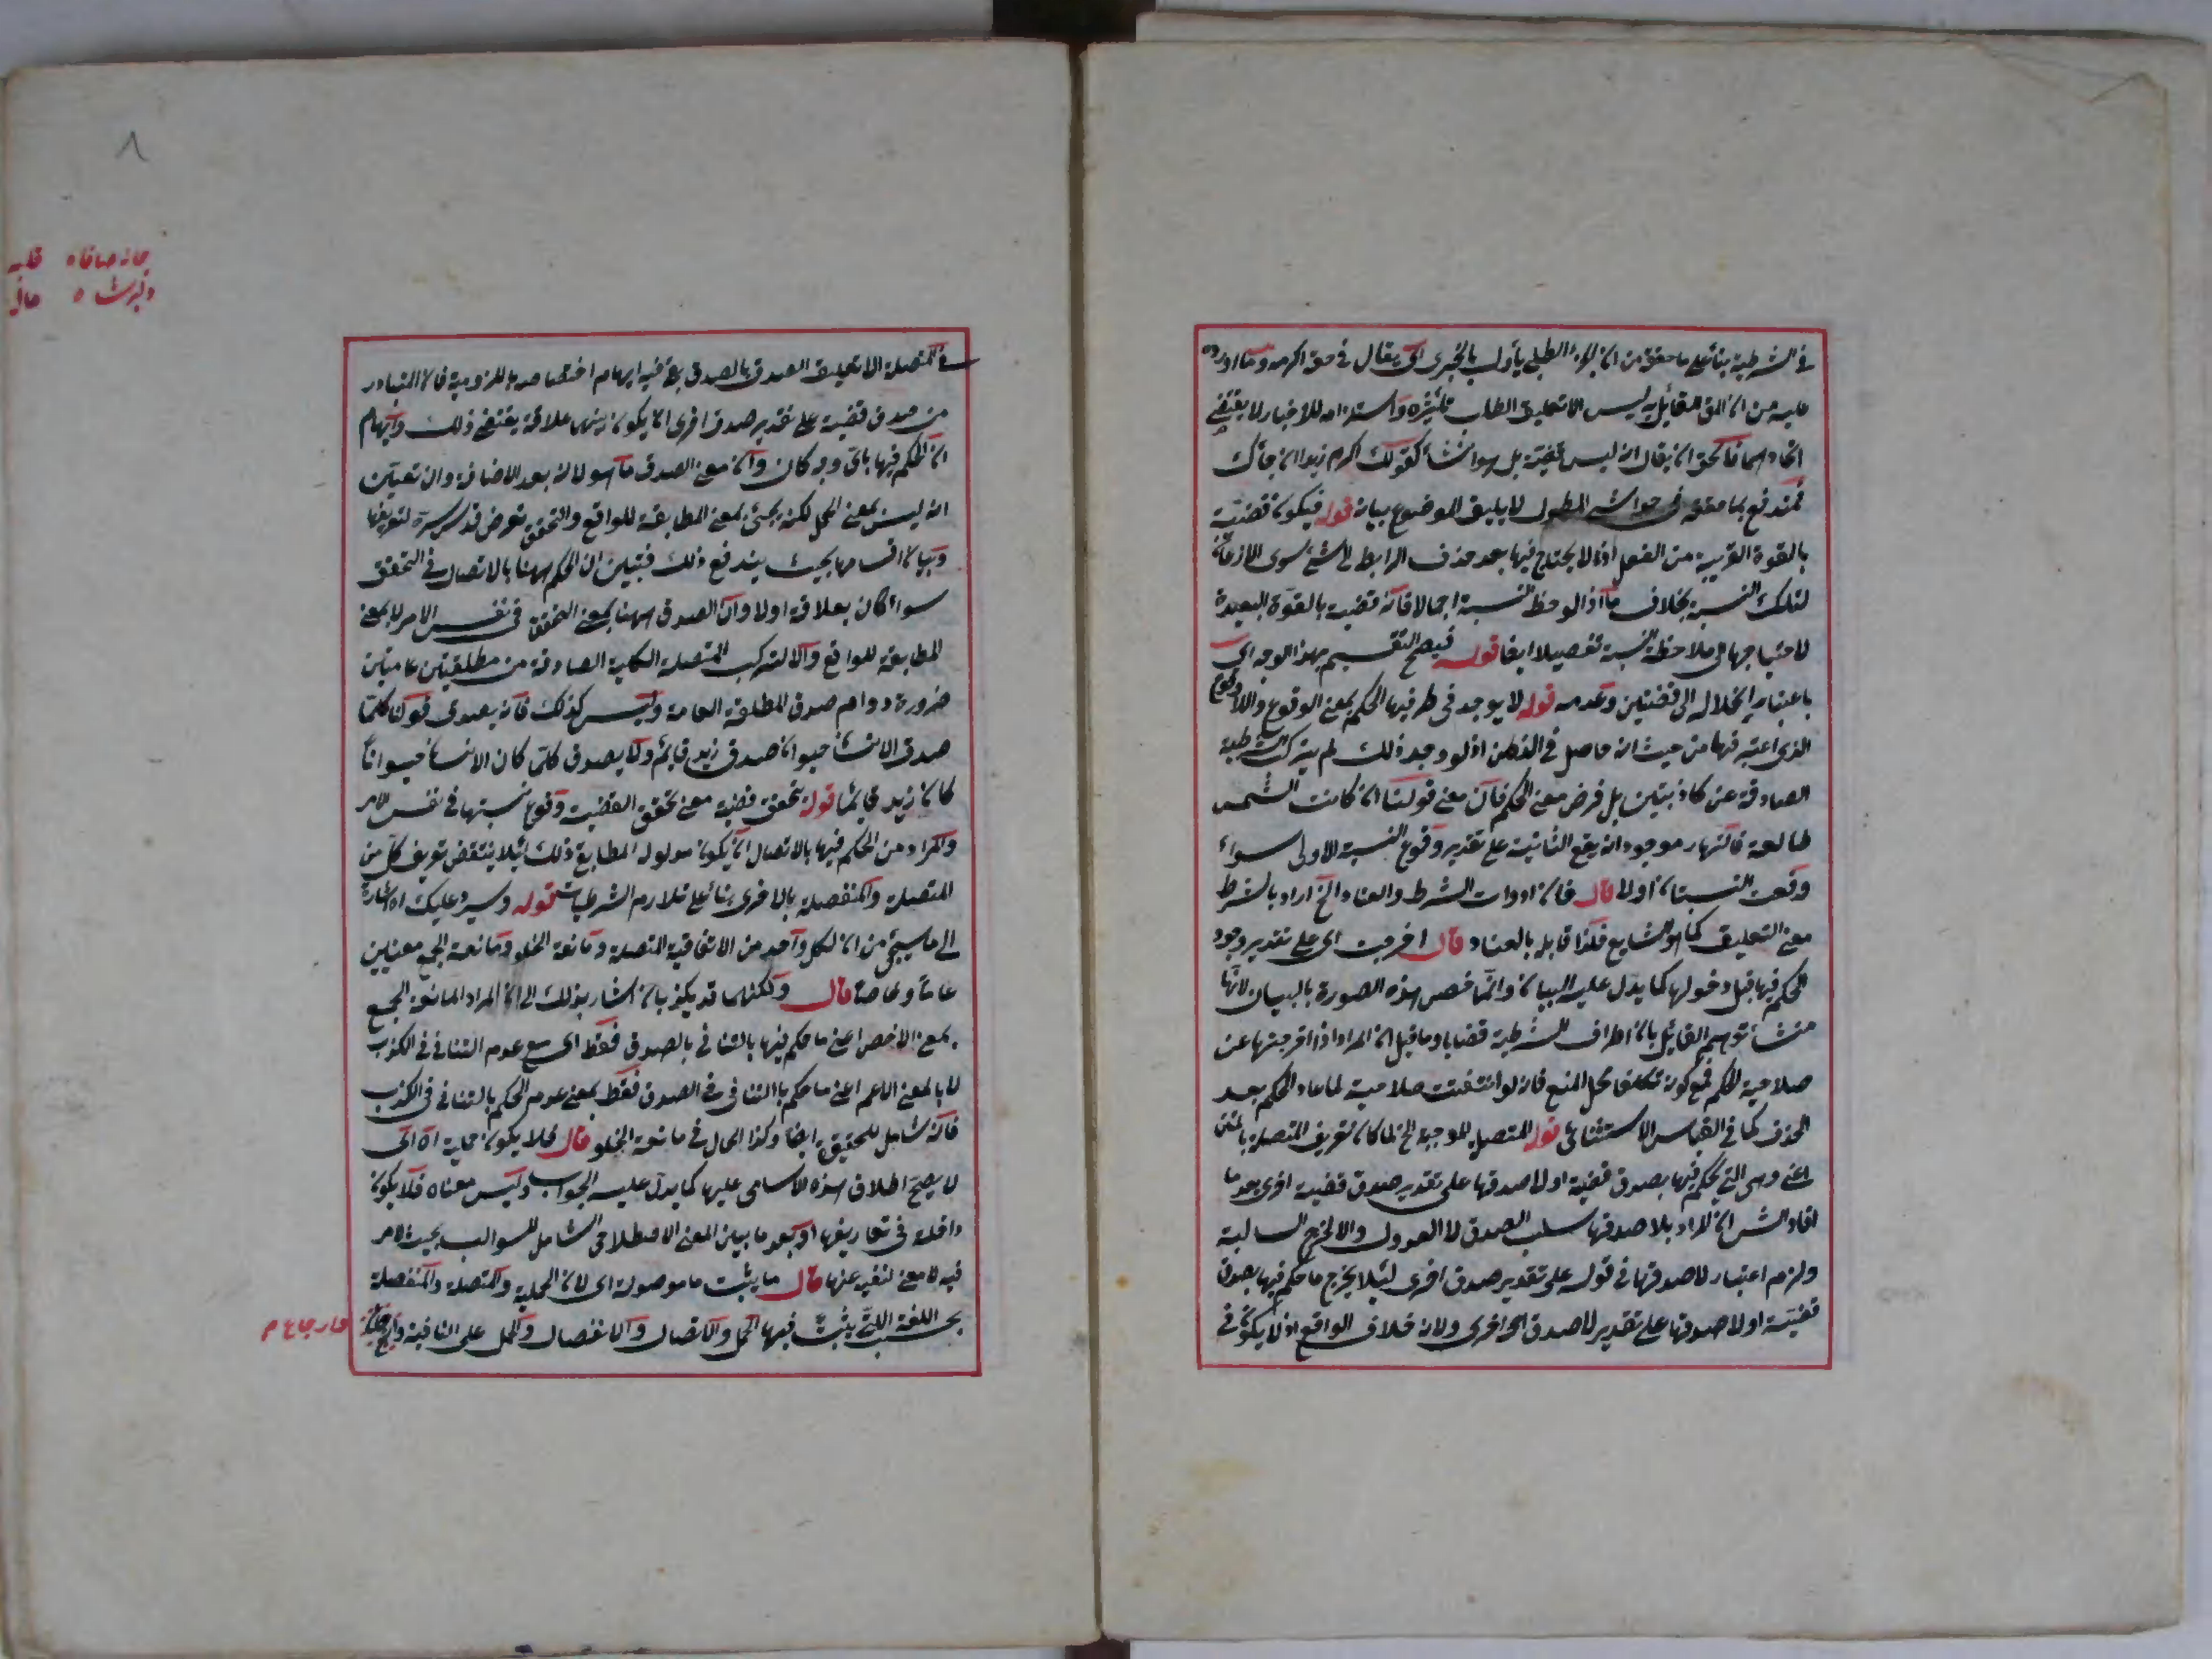 في الشرطية بناء على ما حقق من ان الجزاء الطلبي يأول بالخبرى اى يقال في حقه اكرمه وما اورده
عليه من ان المق القائل به ليس الا تعليق الطلب تأثيره واستلزامه للاخبار لا يقتضي
اتحادهما فالحق ان يقال انه ليس قضية بل هو انشاء كقولك اكرم زيدا ان جاءك
فمندفع بما حققه في حواشي المطول لا يليق الموضوع بيانه قوله فيكون قضية
بالقوة القريبة من الفعل اذ لا يحتاج فيها بعد حذف الرابط لى شئ سوى الاذعان
لتلك النسبة بخلاف ما اذا لوحظ النسبة اجمالا فانه قضية بالقوة البعيدة
لاحتياجها الى ملاحظة النسبة تفصيلا ايضا قوله فيصح التقسيم بهذا الوجه اى
باعتبار انحلاله الى قضيتين وعدمه قوله لا يوجد في طرفيها الحكم بمعنى الوقوع واللاوقوع
الذى اعتبر فيها من حيث انه حاصل في الذهن اذ لو وجد ذلك لم يتركب الشرطية
الصادقة عن كاذبتين بل فرض معنى الحكم فان معنى قولنا ان كانت الشمس
طالعة فالنهار موجود انه يقع الثانية على تقدير وقوع النسبة الاولى سواء
وقعت النسبتان او لا قال فان ادوات الشرط والعناد الخ اراد بالشرط
معنى التعليق كما هو الشايع فلذا قابله بالعناد قال اخرجت اى على تقدير وجود
الحكم فيها قبل دخولها كما يدل عليه البيان وانما خص هذه الصورة بالبيان لانها
منشأ توهم القائل بان اطراف الشرطية قضايا وما قيل ان المراد اذا اخرجتها عن
صلاحية الحكم فمع كونه تكلفا محل المنع فانه لو انتفت صلاحية لما عاد الحكم بعد
الحذف كما في القياس الاستثنائى قوله المتصلة الموجبة الخ لما كان تعريف المتصلة بالمتن
اعنى وهى التى يحكم فيها بصدق قضية او لاصدقها على تقدير صدق قضية اخرى بعد ما
افاد الش ان المراد بلا صدقها سلب الصدق لا العدول والا لخرج السالبة
ولزم اعتبار لاصدقها في قوله على تقدير صدق اخرى لئلا يخرج ما حكم فيها بصدق
قضية او لاصدقها على تقدير لا صدق اخرى ولانه خلاف الواقع اذ لا يكون في
في المتصلة الا تعليق الصدق بالصدق بقى فيه ايهام اختصاصه باللزومية فان المتبادر
من صدق قضية على تقدير صدق اخرى ان يكون بينهما علاقة يقتضى ذلك وايهام
ان الحكم فيها باى وجه كان وان معنى الصدق ما هو لانه بعد الاضافة وان تعين
انه ليس بمعنى الحمل لكنه يجئ بمعنى المطابقة للواقع والتحقق تعرض قدس سره لتعريفها
وبيان اقسامها بحيث يندفع ذلك فتبين ان الحكم ههنا بالاتصال في التحقق
سواء كان بعلاقة او لا وان الصدق ههنا بمعنى التحقق في نفس الامر لا بمعنى
المطابقة للواقع والا لتركب المتصلة الكلية الصادقة من مطلقتين عامتين
ضرورة دوام صدق المطلقة العامة وليس كذلك فانه يصدق قولنا كلما
صدق الانسان حيوان صدق زيد قائم ولا يصدق كلما كان الانسان حيوانا
كان زيد قائما قوله تحقق قضية معنى تحقق القضية وقوع نسبتها في نفس الامر
والمراد من الحكم فيها بالاتصال ان يكون مدلوله المطابق ذلك لئلا ينتقض تعريف كل من
المتصلة والمنفصلة بالاخرى بناء على تلازم الشرطيات قوله وسيرد عليك اه اشارة
الى ما سيجئ من ان لكل واحد من الاتفاقية المتصلة ومانعة الخلو ومانعة الجمع معنيين
عاما وخاصا قال ولكنهما قد يكذبان اشار بذلك الى ان المراد المانعة الجمع
بمعنى الاخص اعنى ما حكم فيها بالتنافى بالصدق فقط اى مع عدم التنافى في الكذب
لا بالمعنى الاعم اعنى ما حكم بالتنافى في الصدق فقط بمعنى عدم الحكم بالتنافى في الكذب
فانه شامل للحقيقية ايضا وكذا الحال في مانعة الخلو قال فلا يكون حملية اه اى
لا يصح اطلاق هذه الاسامى عليها كما يدل عليه الجواب وليس معناه فلا يكون
داخلة في تعاريفها اذ بعد ما بين المعنى الاصطلاحى الشامل للسوالب بحيث لا مر
فيه لا معنى لنفيه عنها قال ما يثبت ما موصولة اى لان الحملية والمتصلة والمنفصلة
بحسب اللغة التى يثبت فيها الحمل والاتصال والانفصال والحمل على النافية